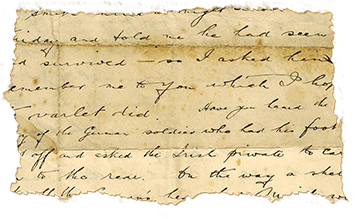 iday and told me he had seen
d survived – so I asked him
emember me to you which I hop
Varlet did. Have you heard the
y of the German soldier who had his foot
t off and asked the Irish private to car
to the rear. On the way a shel